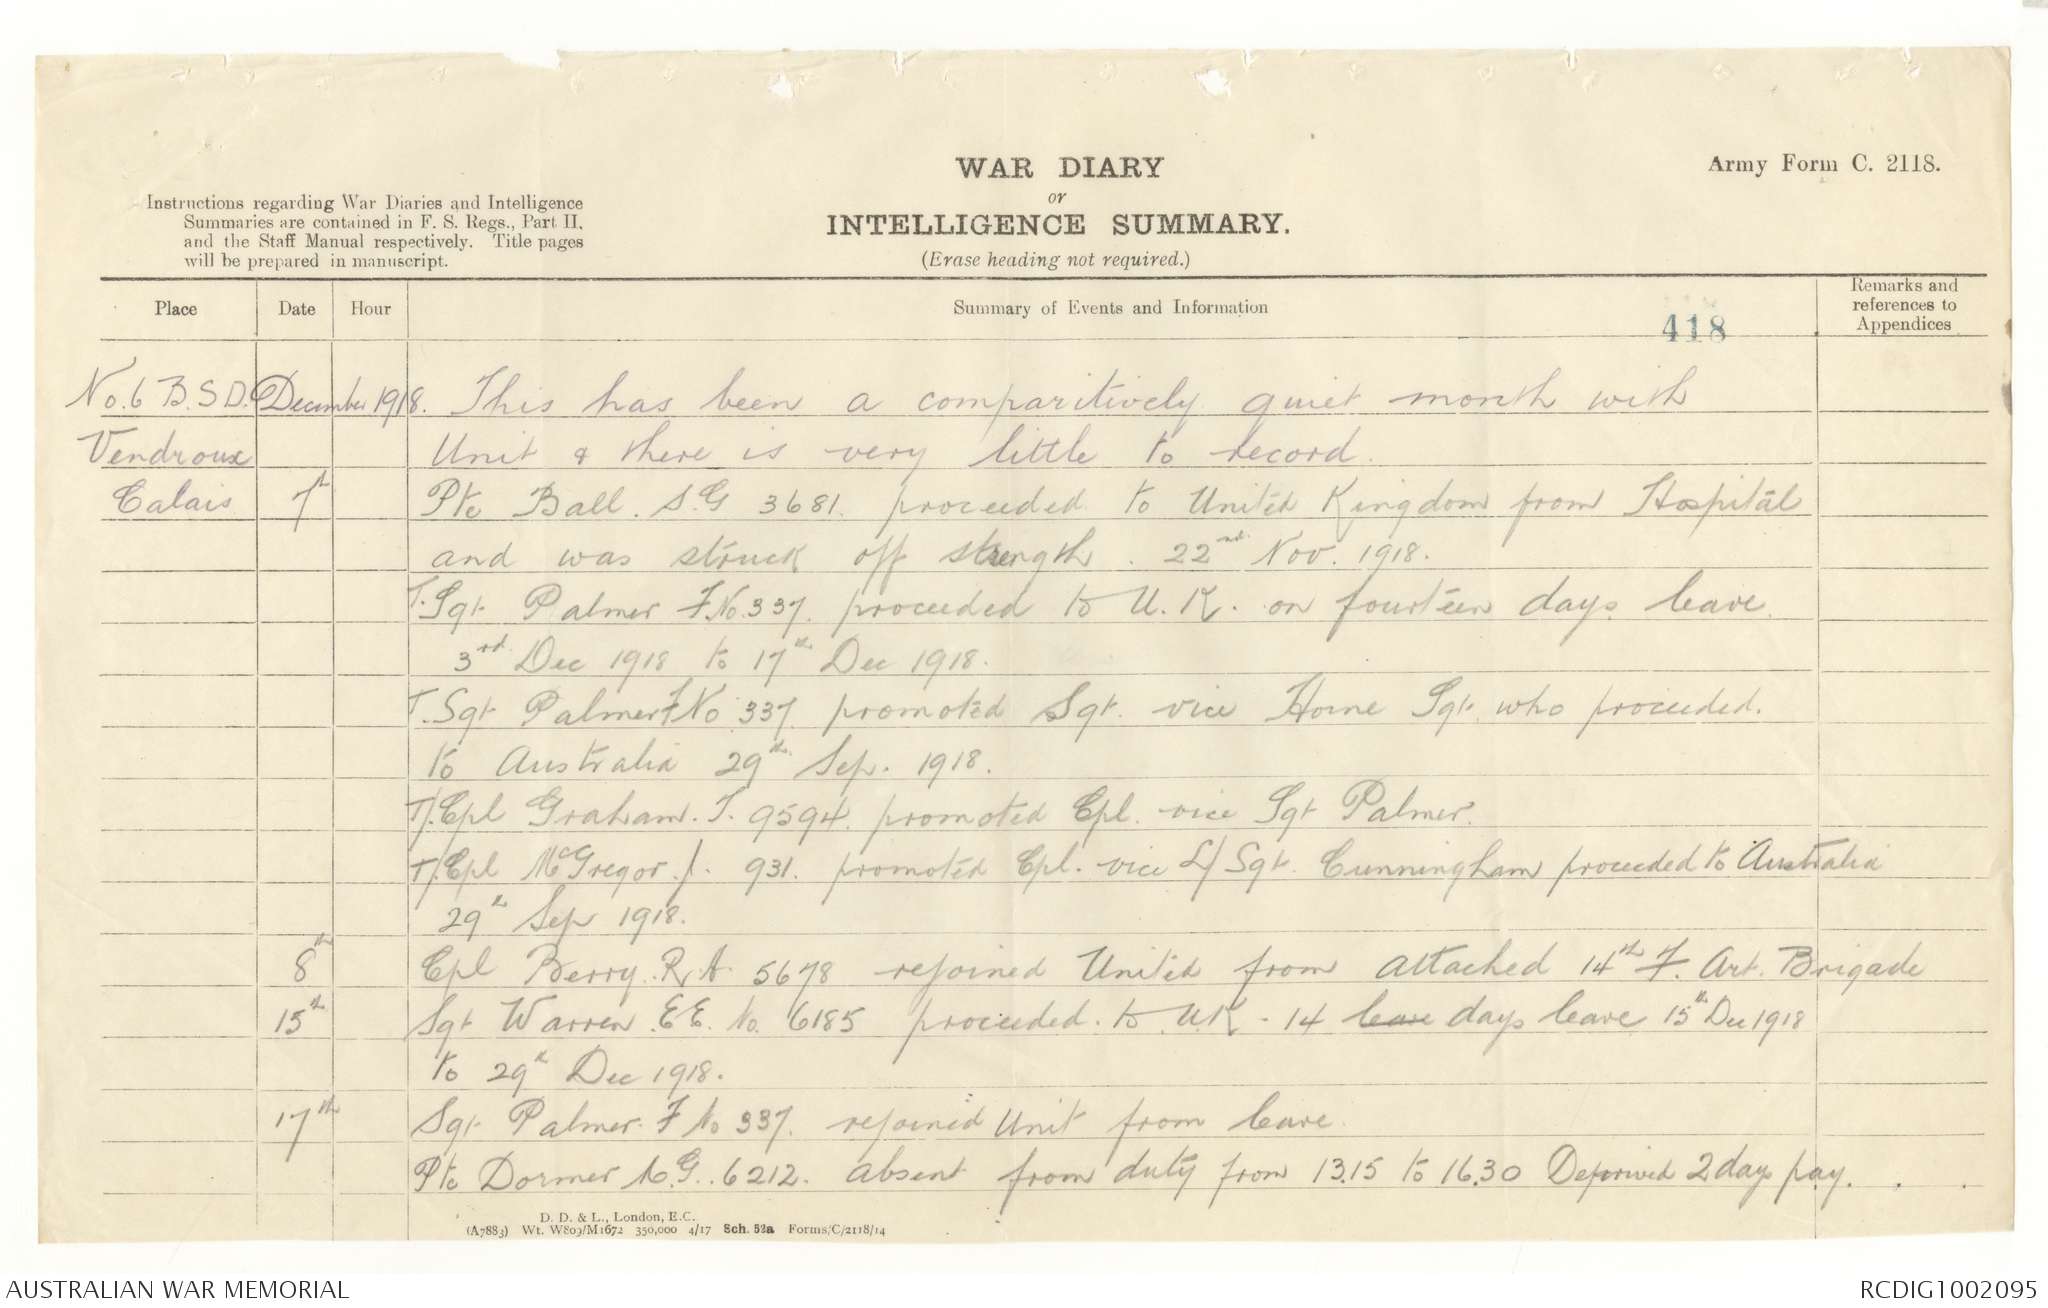 WAR DIARY
or
INTELLIGENCE SUMMARY.
(Erase heading not required.)
Army Form C. 2118.
Instructions regarding War Diaries and Intelligence
Summaries are contained in F. S. Regs., Part II.
and the Staff Manual respectively. Title pages
will be prepared in manuscript.
Place Date Hour Summary of Events and Information Remarks and references to Appendices
418
No. 6 B.S.D. December 1918. This has been a comparitively quiet month with
Vendroux Unit & there is very little to record.
Calais 7th Pte Ball. S.G 3681. proceeded to United Kingdom from Hospital
and was struck off strength. 22nd Nov. 1918.
T.Sgt Palmer F No. 337. proceeded to U.K. on fourteen days leave.
3rd Dec 1918 to 17th Dec 1918.
T.Sgt Palmer F No 337 promoted Sgt. vice Horne Sgt. who proceeded.
to Australia 29th Sep. 1918.
T/.Cpl Graham. T. 9594. promoted Cpl. vice Sgt Palmer.
T/.Cpl McGregor. J. 931. promoted Cpl. vice L/Sgt. Cunningham proceeded to Australia
29th Sep 1918.
8th Cpl Berry. R A 5678 rejoined United from attached 14th F. Art. Brigade
15th Sgt Warren E.E. No. 6185 proceeded. to U.K - 14 leave days leave 15th Dec 1918
to 29th Dec 1918.
17th Sgt Palmer. F No 337. rejoined Unit from leave.
Pte Dormer A.G. 6212. absent from duty from 13.15 to 16.30 Deprived 2 days pay.
D. D. & L., London, E.C.
(A7883) Wt. W809/M1672 350,000 4/17 Sch. 52a Forms/C/2118/14
AUSTRALIAN WAR MEMORIAL
RCDIG1002095